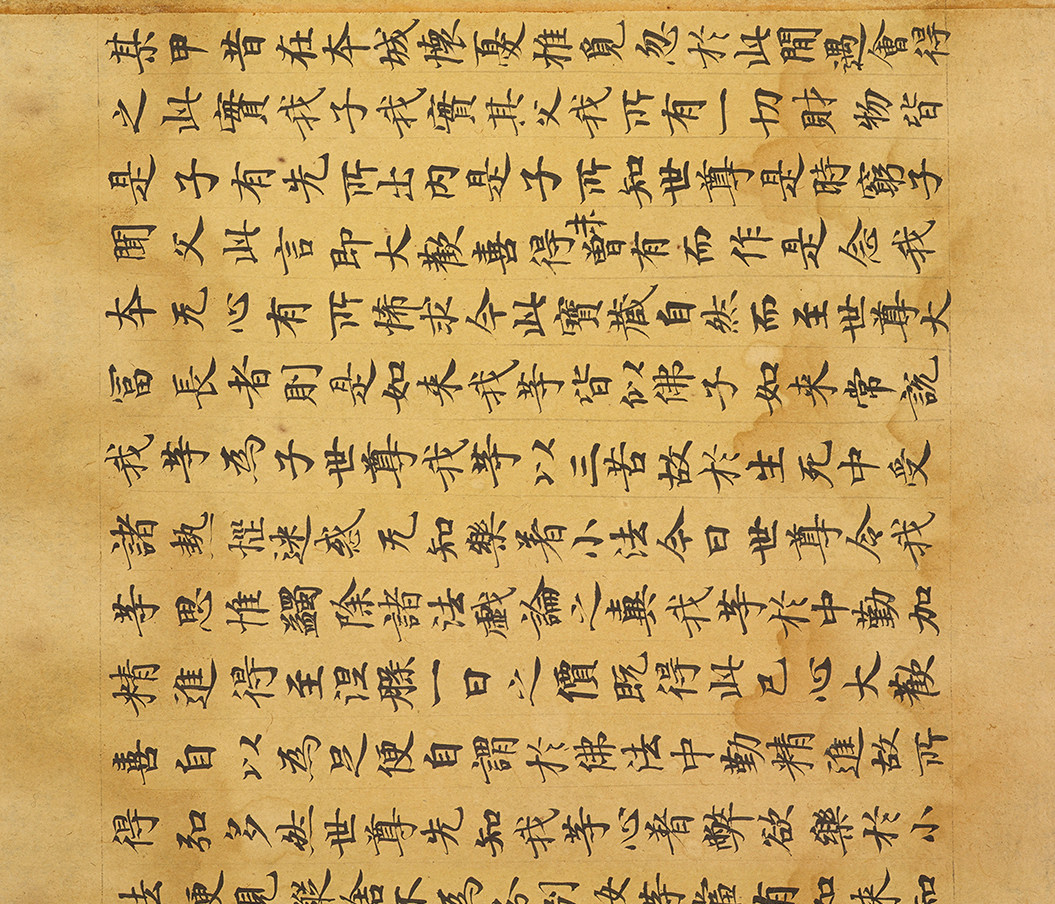 某甲昔在本城懷憂推覓忽於此間遇會得
之此實我子我實其父我所有一切財物皆
是子有先所出内是子所知世尊是時窮子
聞父此言即大歡喜得未曾有而作是念我
本无心有所悕求今此寶藏自然而至世尊大
富長者則是如来我等皆似佛子如来常說
我等為子世尊我等以三苦故於生死中受
諸熱惱迷惑无知樂著小法今日世尊令我
等思惟蠲除諸法戲論之糞我等於中勤加
精進得至涅槃一日之價既得此已心大歡
喜自以為足便自謂於佛法中勤精進故所
得弘多然世尊先知我等心著弊欲樂於小
法便見縱捨不為分別汝等當有如来知